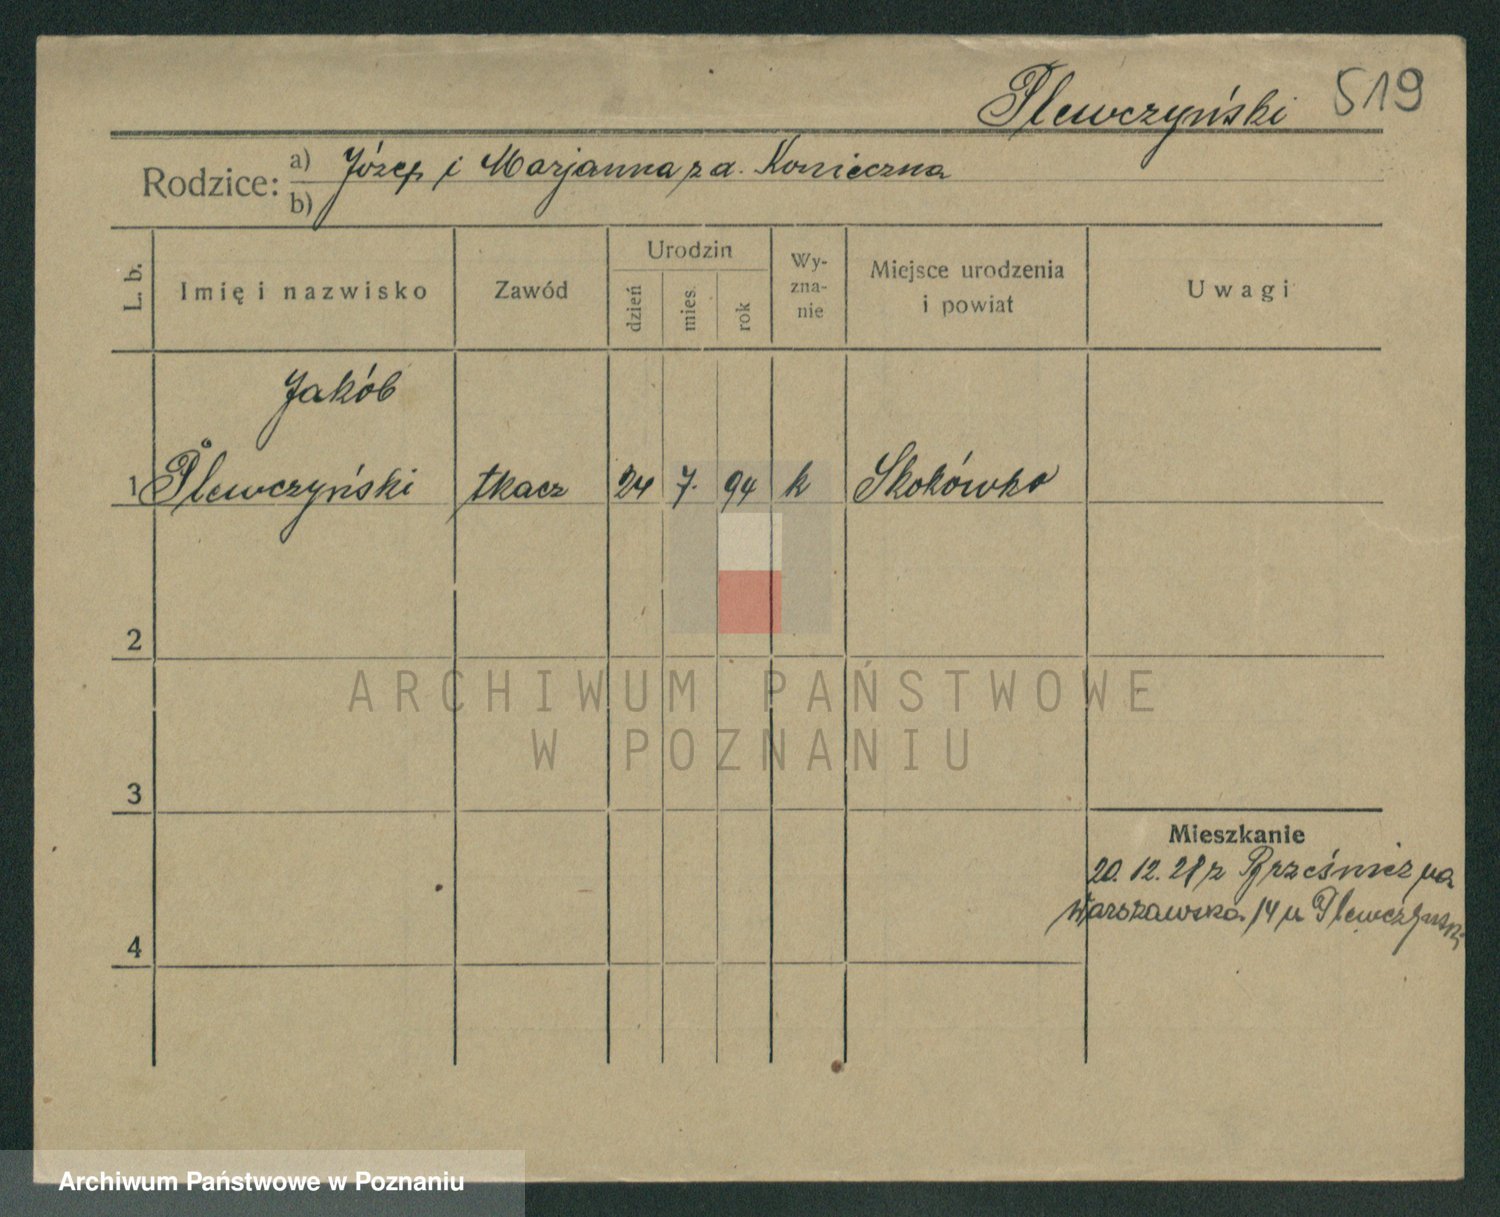 Plewczyński 519
Rodzice: a) Józef i Marjanna z d. Konieczna
b)
L. b.
Imię i nazwisko
Zawód
Urodzin
dzień
mies.
rok
Wy-
zna-
nie
Miejsce urodzenia
i powiat
Uwagi
Jakób
1 Plewczyński tkacz 24 7. 94 k Skokówko
2
ARCHIWUM PAŃSTWOWE
W POZNANIU
3
Mieszkanie
20. 12. 21 z na
Warszawska 14 u Plewczyński
4
Archiwum Państwowe w Poznaniu